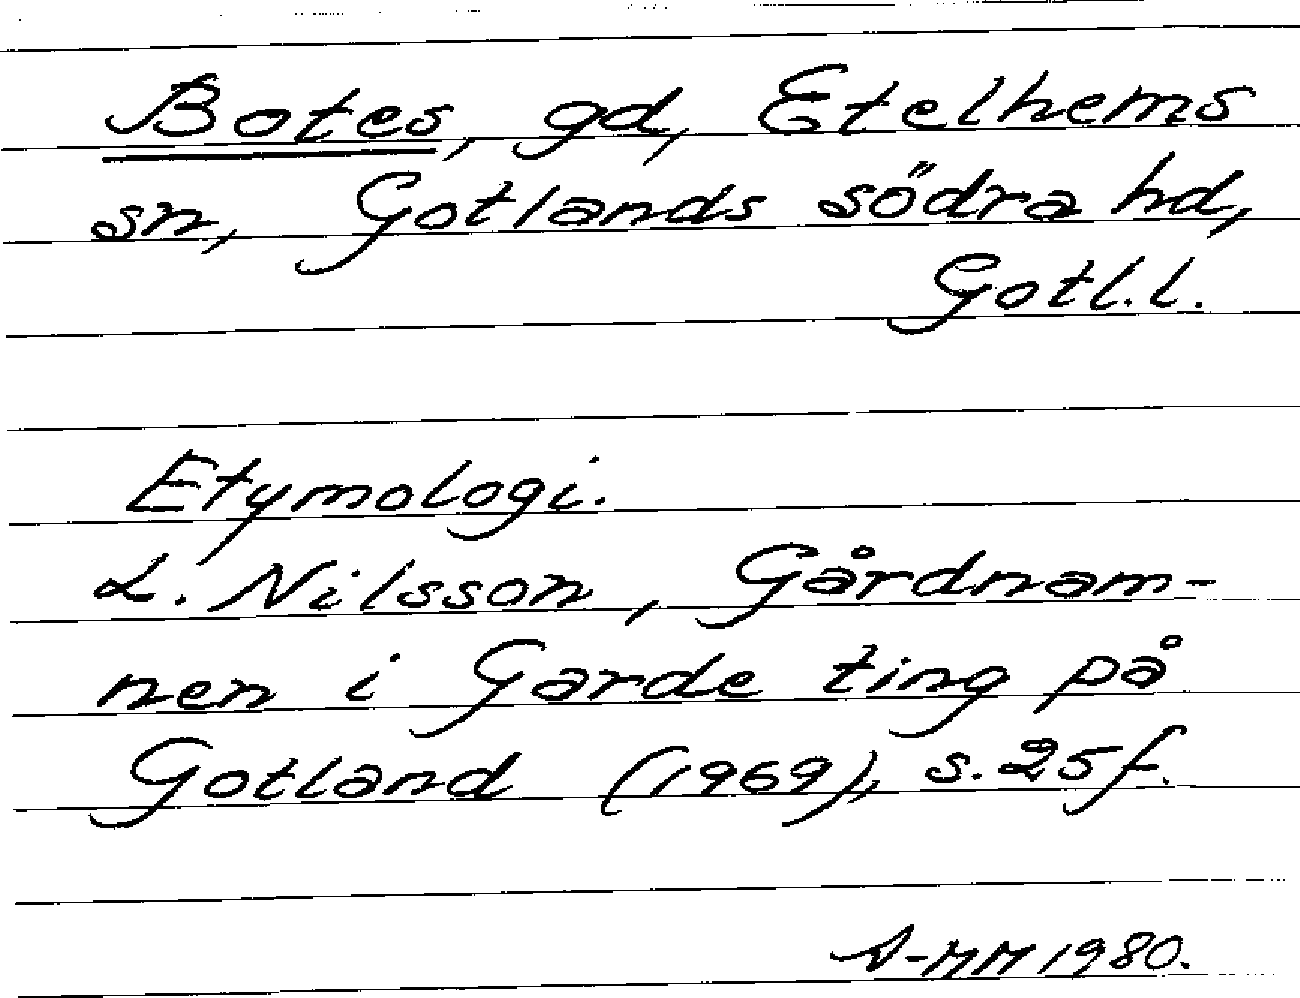 Botes, gd, Etelhems
sn, Gotlands södra hd,
Gotl.l.
Etymologi.
L. Nilsson, Gårdnam-
nen i Garde ting på
Gotland (1969), s. 25f.
A-MM 1980.